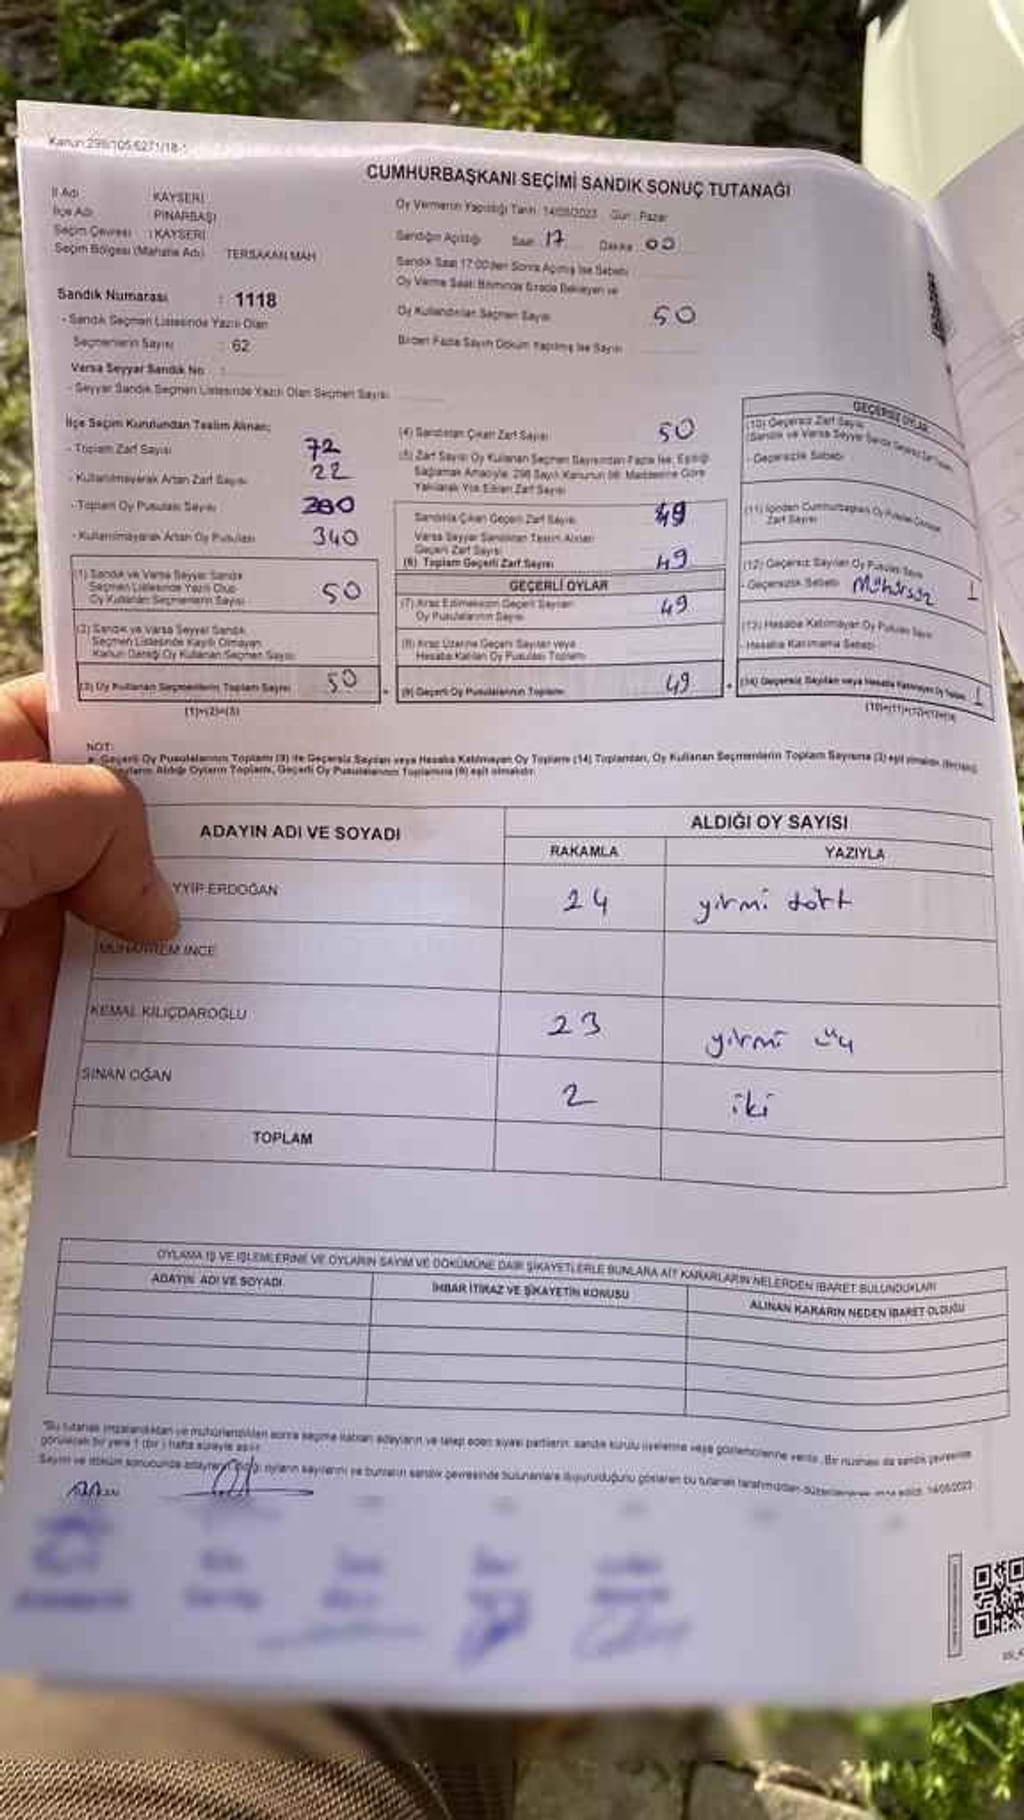 Kanun:298/105 6271/18-1
CUMHURBAŞKANI SEÇİMİ SANDIK SONUÇ TUTANAĞI
İl Adı KAYSERİ
İlçe Adı PINARBAŞI
Seçim Çevresi : KAYSERİ
Seçim Bölgesi (Mahalle Adı) TERSAKAN MAH
Sandık Numarası : 1118
- Sandık Seçmen Listesinde Yazılı Olan
Seçmenlerin Sayısı : 62
Varsa Seyyar Sandık No :
- Seyyar Sandık Seçmen Listesinde Yazılı Olan Seçmen Sayısı
Oy Vermenin Yapıldığı Tarih : 14/05/2023 Gün : Pazar
Sandığın Açıldığı Saat 17 Dakika 00
Sandık Saat 17:00'den Sonra Açılmış İse Sebebi
Oy Verme Saati Bitiminde Sırada Bekleyen ve
Oy Kullandırılan Seçmen Sayısı 50
Birden Fazla Sayım Döküm Yapılmış İse Sayısı
İlçe Seçim Kurulundan Teslim Alınan;
- Toplam Zarf Sayısı 72
- Kullanılmayarak Artan Zarf Sayısı 22
- Toplam Oy Pusulası Sayısı
- Kullanılmayarak Artan Oy Pusulası 340
(1) Sandık ve Varsa Seyyar Sandık
Seçmen Listesinde Yazılı Olup
Oy Kullanan Seçmenlerin Sayısı 50
(2) Sandık ve Varsa Seyyar Sandık
Seçmen Listesinde Kayıtlı Olmayan
Kanun Gereği Oy Kullanan Seçmen Sayısı
(3) Oy Kullanan Seçmenlerin Toplam Sayısı 50
(1)+(2)=(3)
(4) Sandıktan Çıkan Zarf Sayısı 50
(5) Zarf Sayısı Oy Kullanan Seçmen Sayısından Fazla İse, Eşitliği
Sağlamak Amacıyla, 298 Sayılı Kanunun 98. Maddesine Göre
Yakılarak Yok Edilen Zarf Sayısı
Sandıkta Çıkan Geçerli Zarf Sayısı 49
Varsa Seyyar Sandıktan Teslim Alınan
Geçerli Zarf Sayısı
(6) Toplam Geçerli Zarf Sayısı 49
GEÇERLİ OYLAR
(7) İtiraz Edilmeksizin Geçerli Sayılan
Oy Pusulasının Sayısı 49
(8) İtiraz Üzerine Geçerli Sayılan veya
Hesaba Katılan Oy Pusulası Toplamı
(9) Geçerli Oy Pusulalarının Toplamı 49
GEÇERSİZ OYLAR
(10) Geçersiz Zarf Sayısı
- Geçersizlik Sebebi :
Zarf Sayısı
(12) Geçersiz Sayılan Oy Pusulası Sayısı
- Geçersizlik Sebebi Mühürsüz 1
(13) Hesaba Katılmayan Oy Pusulası Sayısı
- Hesaba Katılmama Sebebi
(14) Geçersiz Sayılan veya Hesaba Katılmayan Oy 1
(10)+(11)+(12)+(13)=(14)
NOT:
Geçerli Oy Pusulalarının Toplamı (9) ile Geçersiz Sayılan veya Hesaba Katılmayan Oy Toplamı (14) Toplamları, Oy Kullanan Seçmenlerin Toplam Sayısına (3) eşit olmalıdır.
Aldığı Oyların Toplamı, Geçerli Oy Pusulalarının Toplamına (9) eşit olmalıdır.
ADAYIN ADI VE SOYADI ALDIĞI OY SAYISI
RAKAMLA YAZIYLA
YYİP ERDOĞAN 24 yirmi dört
MUHARREM İNCE
KEMAL KILIÇDAROĞLU 23 yirmi üç
SİNAN OĞAN 2 iki
TOPLAM
OYLAMA İŞ VE İŞLEMLERİNE VE OYLARIN SAYIM VE DÖKÜMÜNE DAİR ŞİKAYETLERLE BUNLARA AİT KARARLARIN NELERDEN İBARET BULUNDUKLARI
ADAYIN ADI VE SOYADI İHBAR İTİRAZ VE ŞİKAYETİN KONUSU ALINAN KARARIN NEDEN İBARET OLDUĞU
*Bu tutanak imzalandıktan ve mühürlendikten sonra seçime katılan adayların ve talep eden siyasi partilerin, sandık kurulu üyelerine veya gözlemcilerine verilir. Bir nüshası da sandık çevresinde
görülecek bir yere 1 (bir) hafta süreyle asılır.
Sayım ve döküm sonucunda oyların sayılarını ve bunların sandık çevresinde bulunanlara duyurulduğunu gösteren bu tutanak tarafımızdan düzenlenerek 14/05/2023